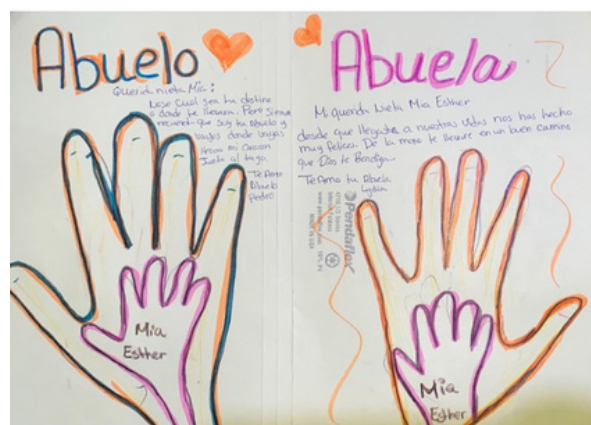 Abuelo
Querida nieta Mia:
No se Cual sea tu destino
o donde te llevara. Pero Siempre
recuerda que soy tu abuelo y
vayas donde vayas
mi Corazon
Junto al tuyo.
Te Amo
Abuelo
Pedro
Mia
Esther
Abuela
Mi querida Nieta Mia Esther
desde que llegaste a nuestras vidas nos has hecho
muy felices. De la mano te llevare en un buen camino
que Dios te Bendiga.
Te Amo tu Abuela
Lydia
Pendaflex
Mia
Esther